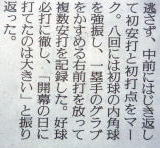 逃さず、中前にはじき返し
て初安打と初打点をマー
ク。八回には初球の内角球
を強振し、一塁手のグラブ
をかすめる右前打を放って
複数安打を記録した。好球
必打に徹し、「開幕の日に
打てたのは大きい」と振り
返った。